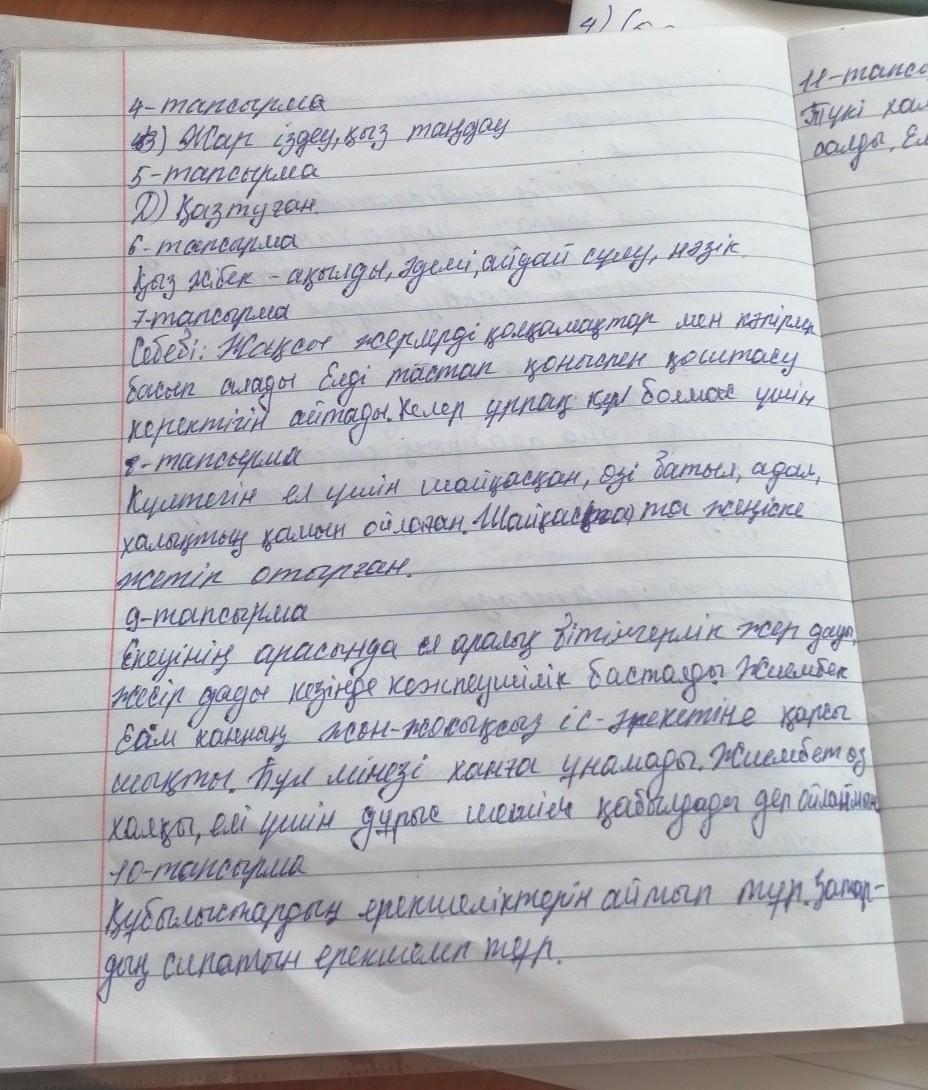 4) 
4-тапсырма
В) Жар іздеу, қыз таңдау
5-тапсырма
Д) Қазтуған.
6-тапсырма
Қыз Жібек - ақылды, әдемі, айдай сұлу, нәзік.
7-тапсырма
Себебі: Жақсы жерлерді қолқамақтар мен кәпірлер
басып алады Елді тастап қоныспен қоштасу
керектігін айтады. Келер ұрпақ құл болмас үшін
8-тапсырма
Күлтегін ел үшін шайқасқан, өзі батыл, адал,
халықтың қамын ойлаған. Шайқаста та жеңіске
жетіп отырған.
9-тапсырма
Екеуінің арасында ел аралық бітімгерлік жер дауы,
жесір дауы кезінде кекпеушілік басталды Жиембек
Есім ханның жөн-жосықсыз іс-әрекетіне қарсы
шықты. Бұл мінезі ханға ұнамады. Жиембет өз
халқы, елі үшін дұрыс шешім қабылдады деп ойлаймын
10-тапсырма
Құбылыстардың ерекшеліктерін айтып тұр. Заттар-
дың сипатын ерекшелеп тұр.
11-тапсо
Түкі хал
салды, Ел